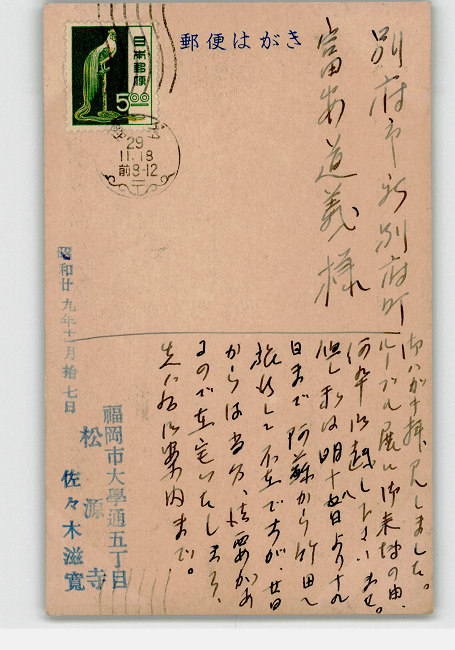 郵便はがき
日本郵便
5.00
29
11.18
前8-12
別府市新別府町
富安道義様
御ハガキ拝見しました。
ルーブル展に御来福の由、
何卒御越し下さいませ。
但し私は明十五日より十九
日まで阿蘇から竹田へ
旅行して不在ですが、廿日
からは当分法要があ
るので在宅いたしませう、
先は右御案内まで。
昭和廿九年十一月拾七日
福岡市大學通五丁目
松源寺
佐々木滋寛